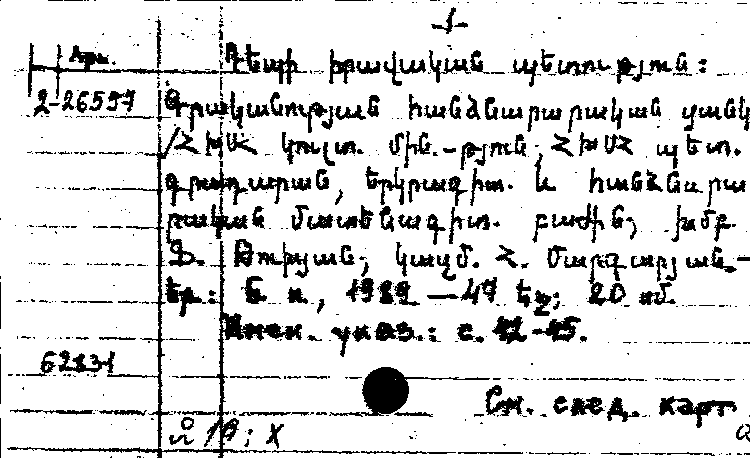 -1-
Արм.
Դեպի իրավական պետություն:
2-26557
Գրականության հանձնարարական ցանկ
/ՀԽՍՀ կուլտ. մին.-թյուն, ՀԽՍՀ պետ.
գրադարան, երկրագիտ. և հանձնարա
րական մատենագիտ. բաժին; խմբ.
Ֆ. Թուխյան; կազմ. Հ. Մարգարյան.-
Եր.: Բ. и., 1989 — 47 էջ; 20 սմ.
Имен. указ.: с. 42-45.
62831
См. след. карт